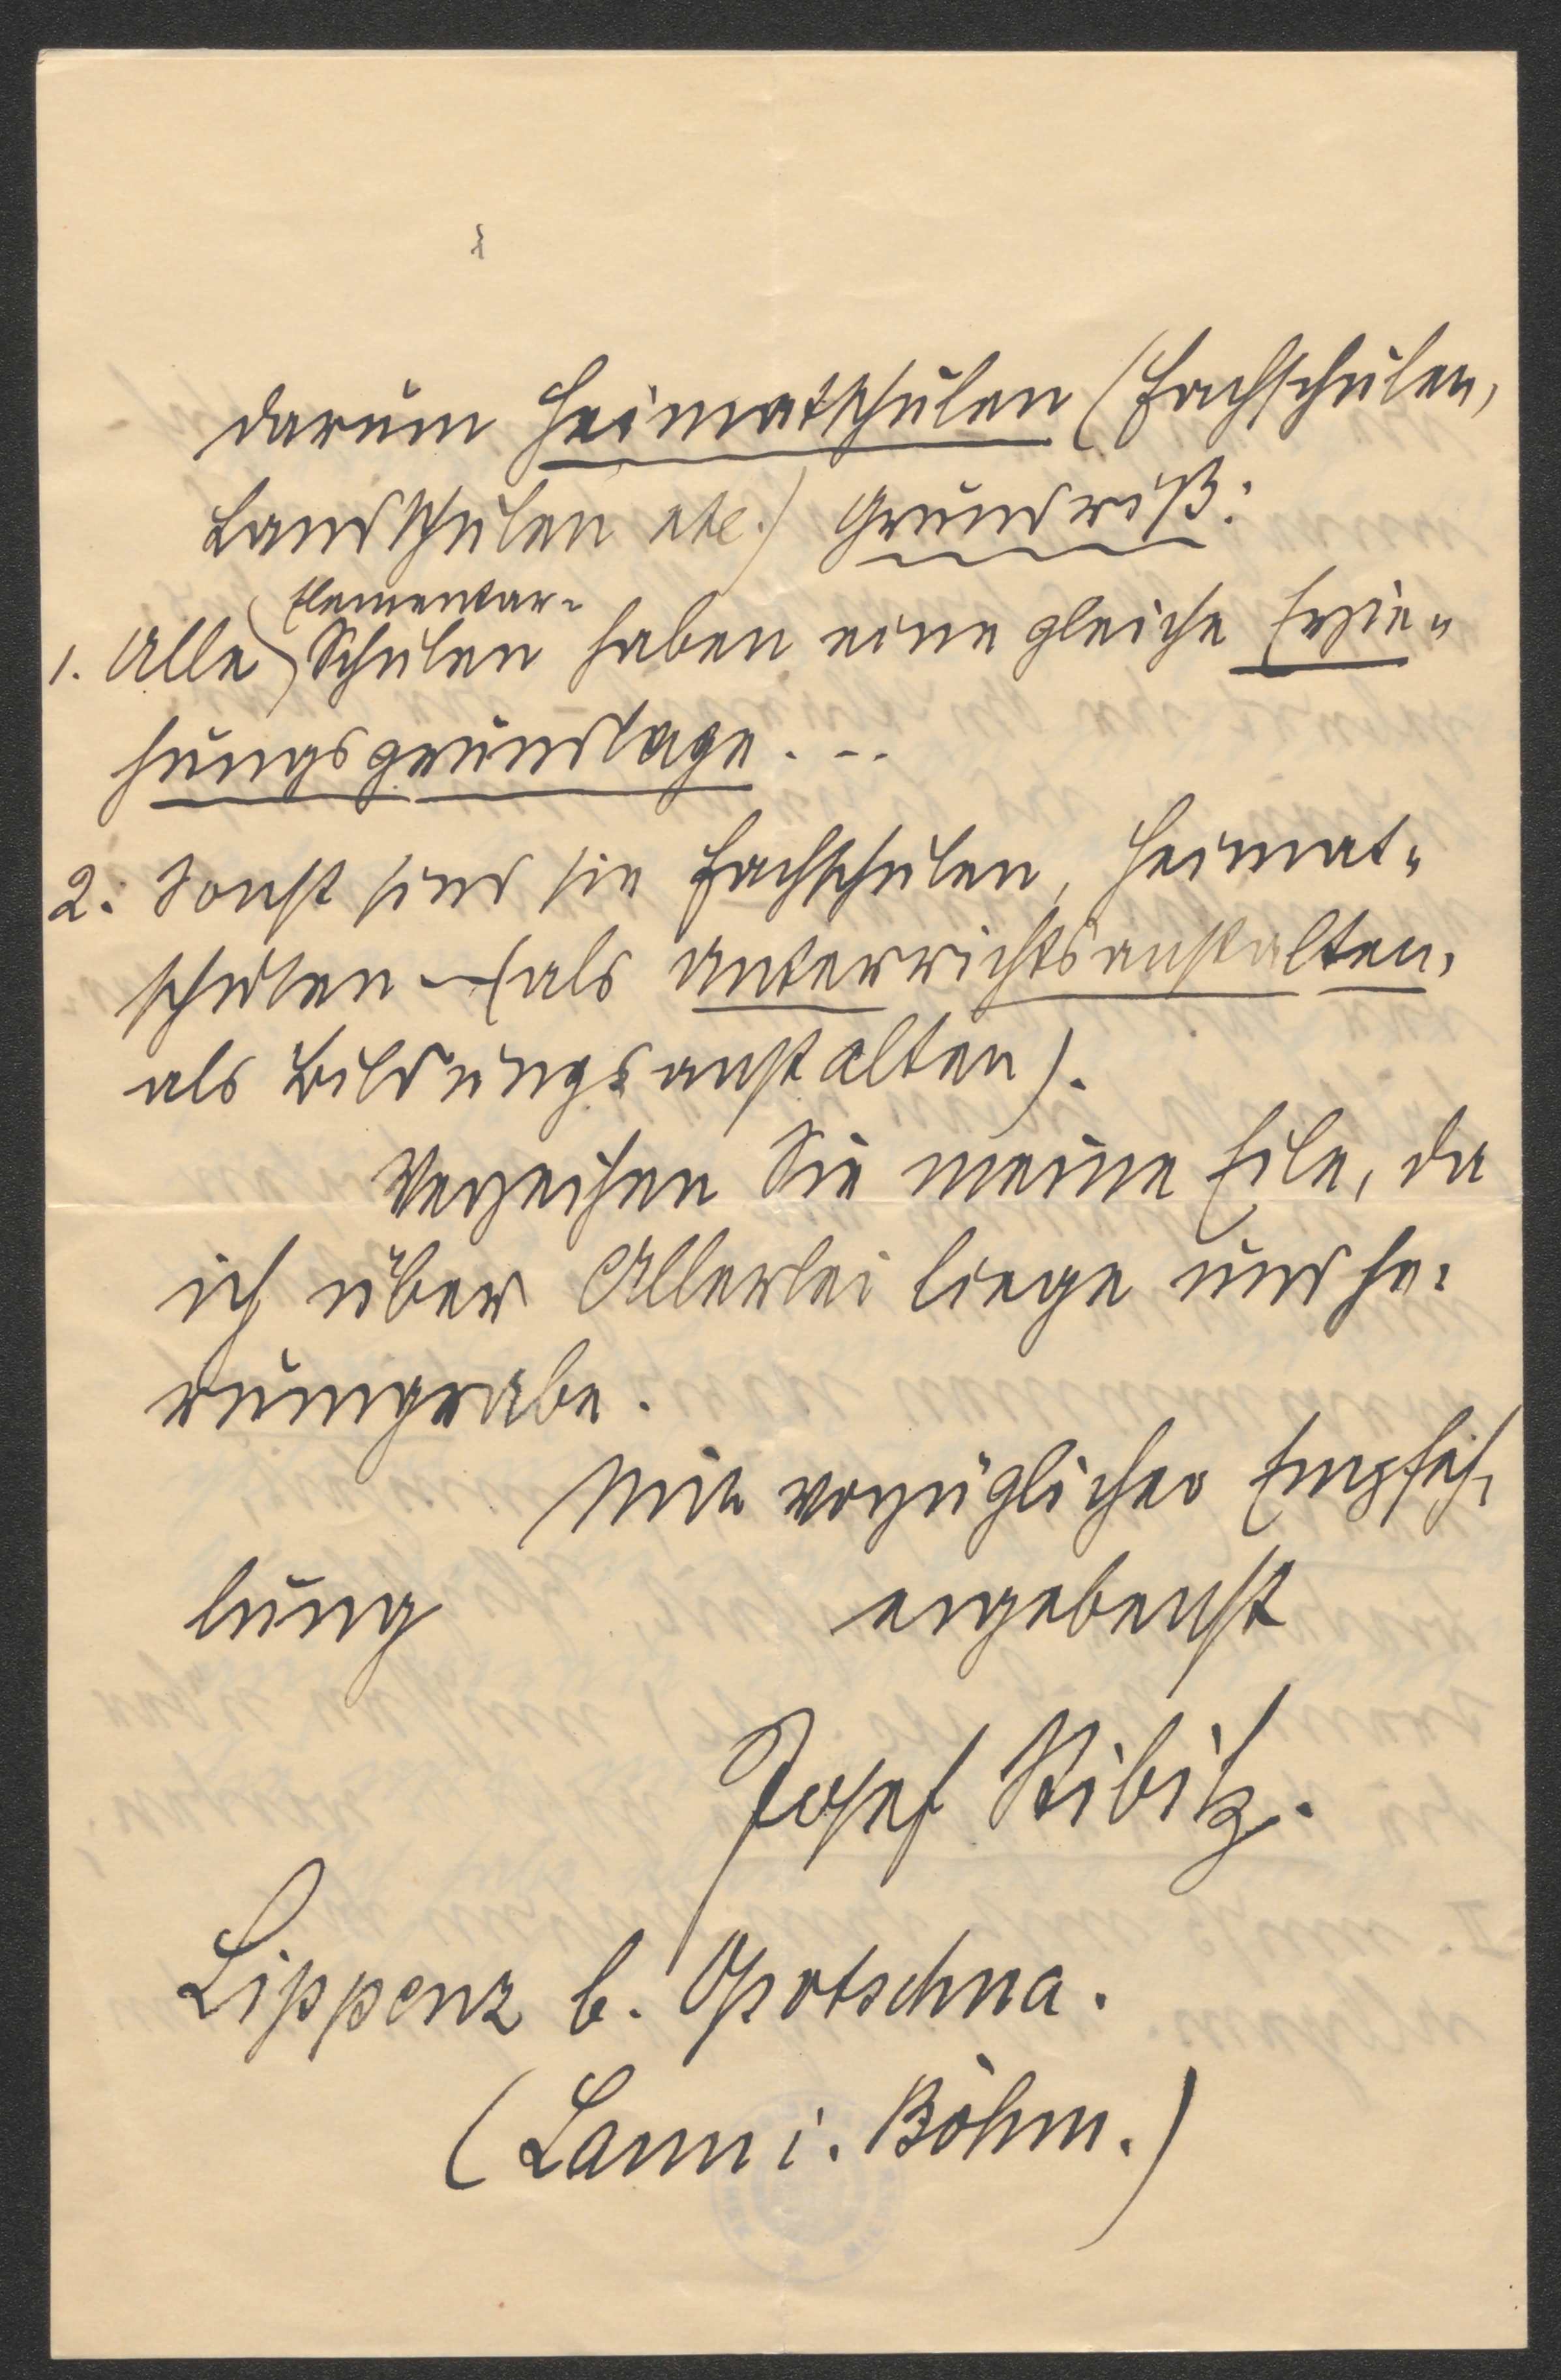 darum Heimatschulen (Fachschulen,
Landschulen etc.) Grundriß:
Elementar-
1. Alle Schulen haben eine gleiche Erzie-
hungsgrundlage. --
2. Sonst sind sie Fachschulen, Heimat-
schulen – (als Unterrichtsanstalten,
als Bildungsanstalten).
Verzeihen Sie meine Eile, da
ich über Allerlei liege und he-
rumgrabe.
Mit vorzüglicher Empfeh-
lung ergebenst
Josef Stibitz.
Lippenz b. Opotschna.
(Laun i. Böhm.)